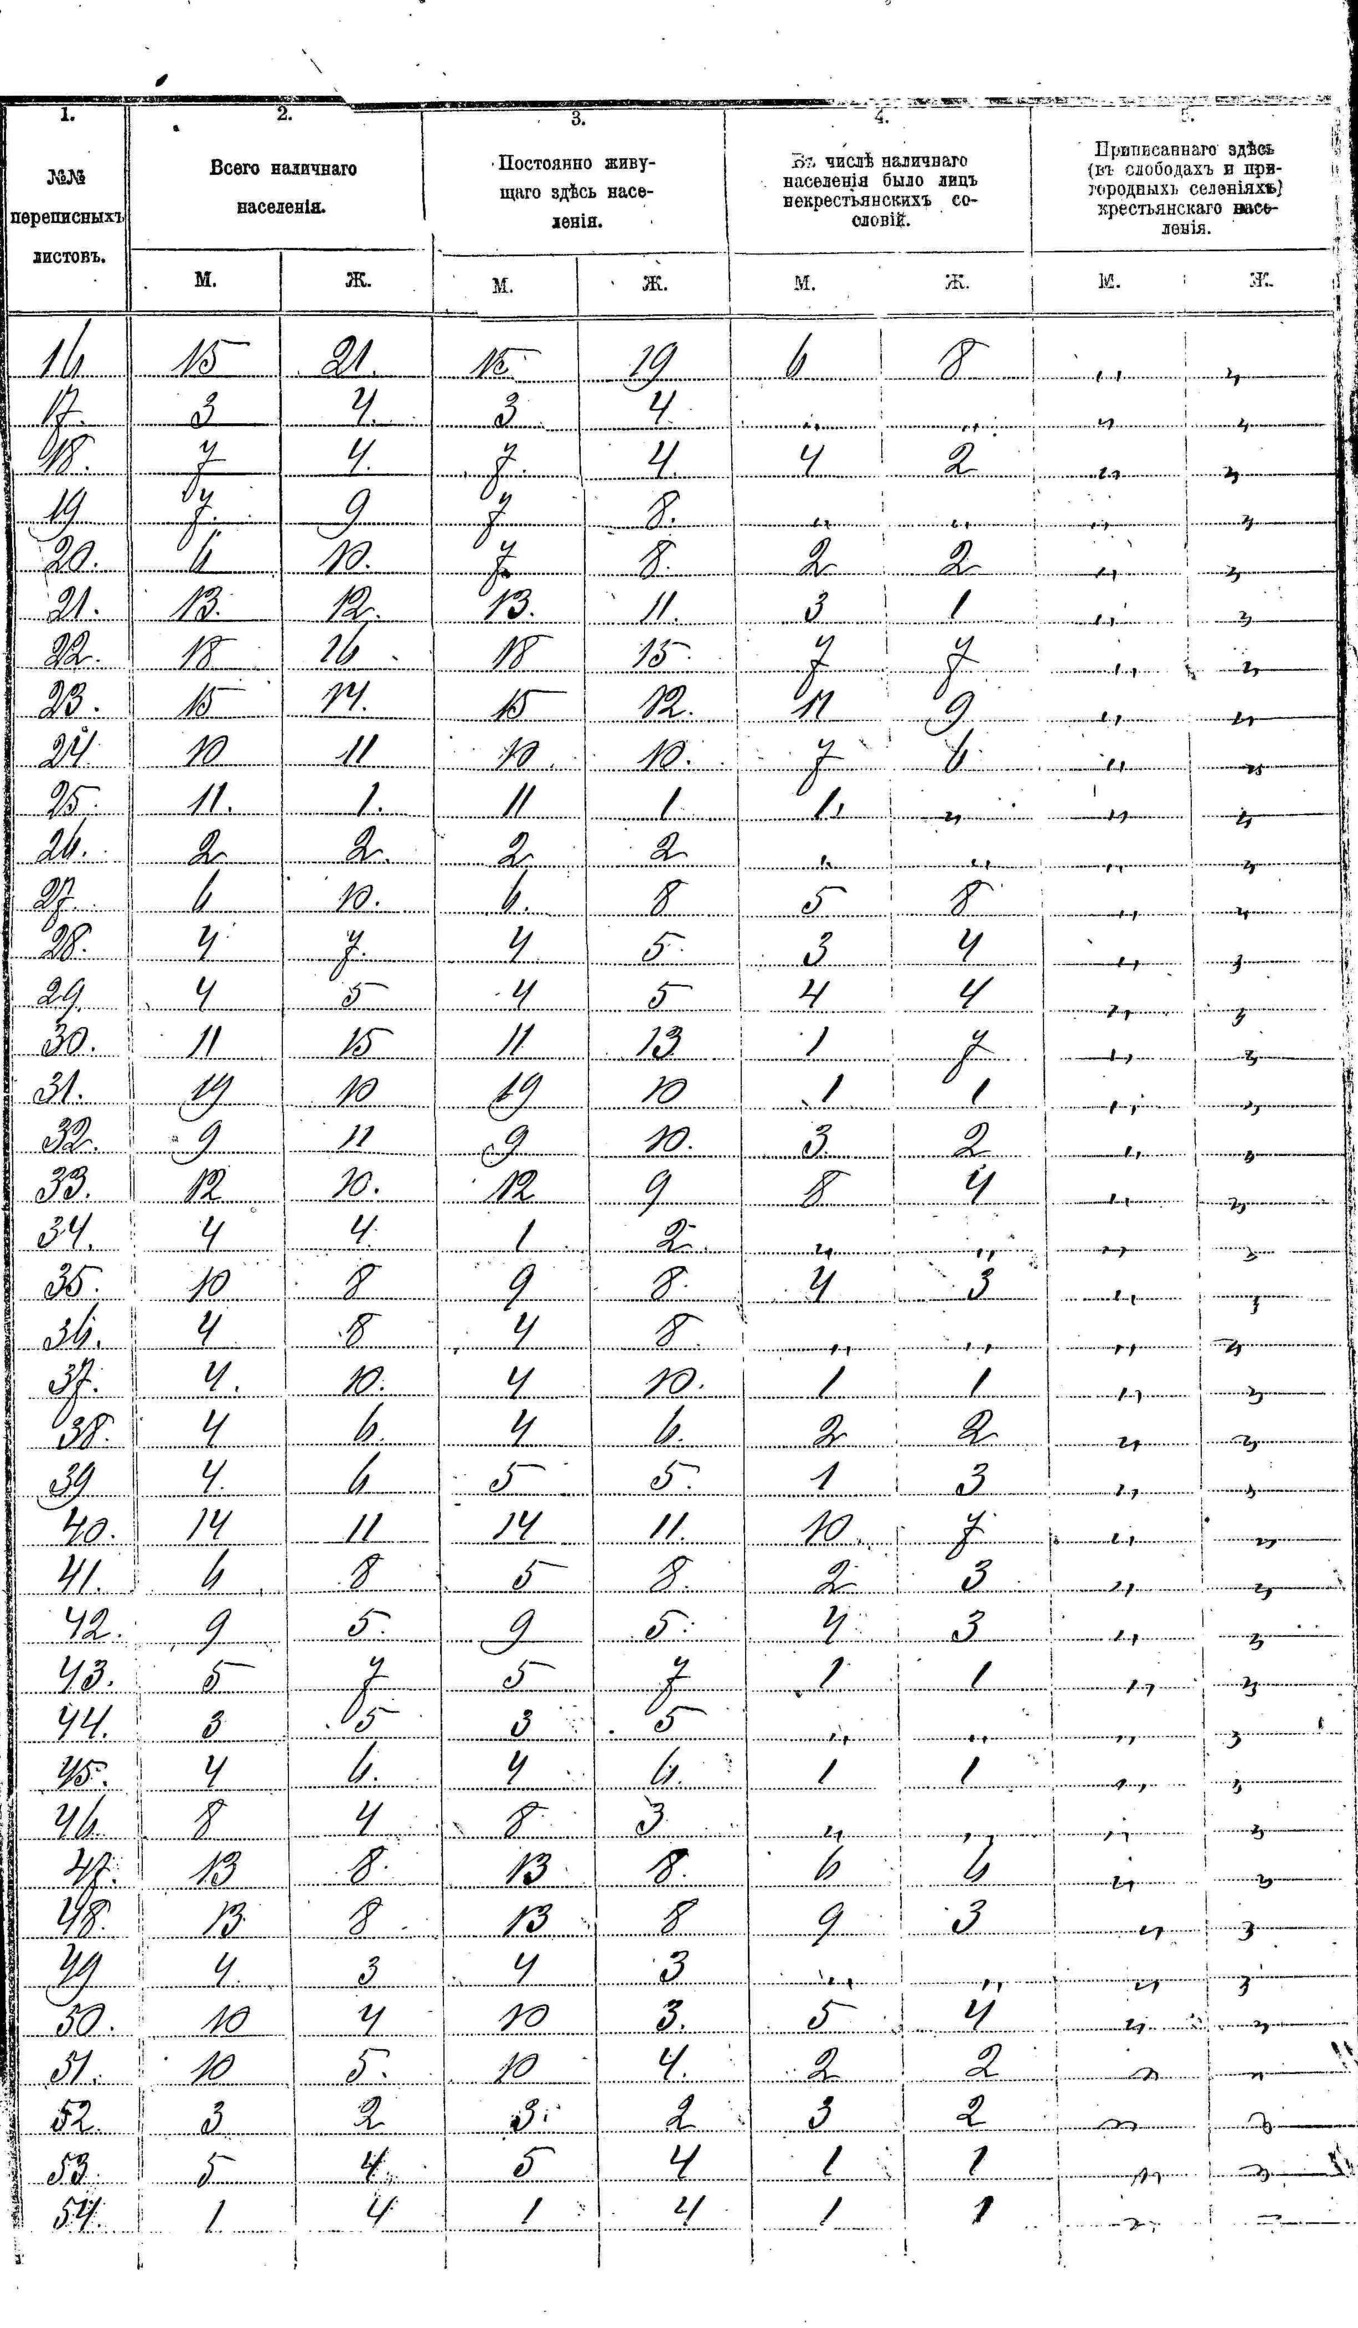 1. 2. 3. 4. 5.
№№ переписныхъ листовъ.
Всего наличнаго населенія.
Постоянно живущаго здѣсь населенія.
Въ числѣ наличнаго населенія было лицъ некрестьянскихъ сословій.
Приписаннаго здѣсь (въ слободахъ и пригородныхъ селеніяхъ) крестьянскаго населенія.
М. Ж. М. Ж. М. Ж. М. Ж.
16 15 21. 15 19 6 8 " "
17. 3 4. 3 4 " " " "
18. 7 4. 7. 4. 4 2 " "
19 7. 9 7 8. " " " "
20. 6 10. 7 8. 2 2 " "
21. 13. 12. 13. 11. 3 1 " "
22. 18 16 18 15 7 7 " "
23. 15 14. 15 12. 11 9 " "
24 10 11 10. 10. 7 6 " "
25. 11. 1. 11 1 1. " " "
26. 2 2. 2 2 " " " "
27. 6 10. 6. 8 5 8 " "
28. 4 7. 4 5 3 4 " "
29. 4 5 4 5 4 4 " "
30. 11 15 11 13 1 7 " "
31. 19 10 19 10 1 1 " "
32. 9 11 9 10. 3 2 " "
33. 12 10. 12 9 8 4 " "
34. 4 4 1 2 " " " "
35. 10 8 9 8. 4 3 " "
36. 4 8 4 8 " " " "
37. 4. 10. 4 10. 1 1 " "
38. 4 6. 4 6. 2 2 " "
39 4. 6 5 5. 1 3 " "
40. 14 11 14 11. 10 7 " "
41. 6 8 5 8. 2 3 " "
42. 9 5. 9 5. 4 3 " "
43. 5 7 5 7 1 1 " "
44. 3 5 3 5 " " " "
45. 4 6. 4 6. 1 1 " "
46 8 4 8 3 " " " "
47. 13 8. 13 8. 6 6 " "
48. 13 8 13 8 9 3 " "
49 4. 3 4 3 " " " "
50. 10 4 10 3. 5 4 " "
51. 10 5. 10 4. 2 2 " "
52. 3 2 3. 2 3 2 " "
53 5 4 5 4 1 1 " "
54. 1 4 1 4 1 1 " "